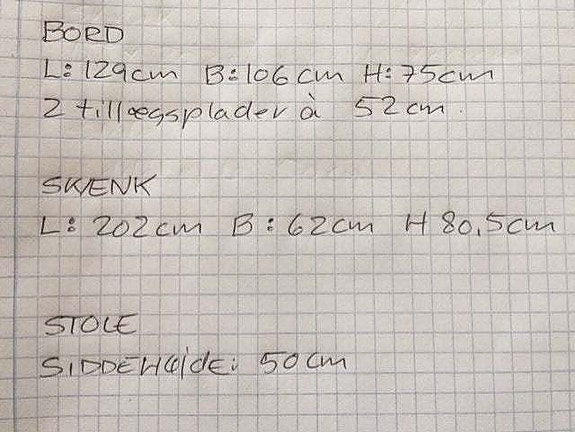 BORD
L: 129cm B: 106cm H: 75cm
2 tillægsplader à 52cm.
SKÆNK
L: 202cm B: 62cm H 80,5cm
STOLE
SIDDEHØJDE: 50cm